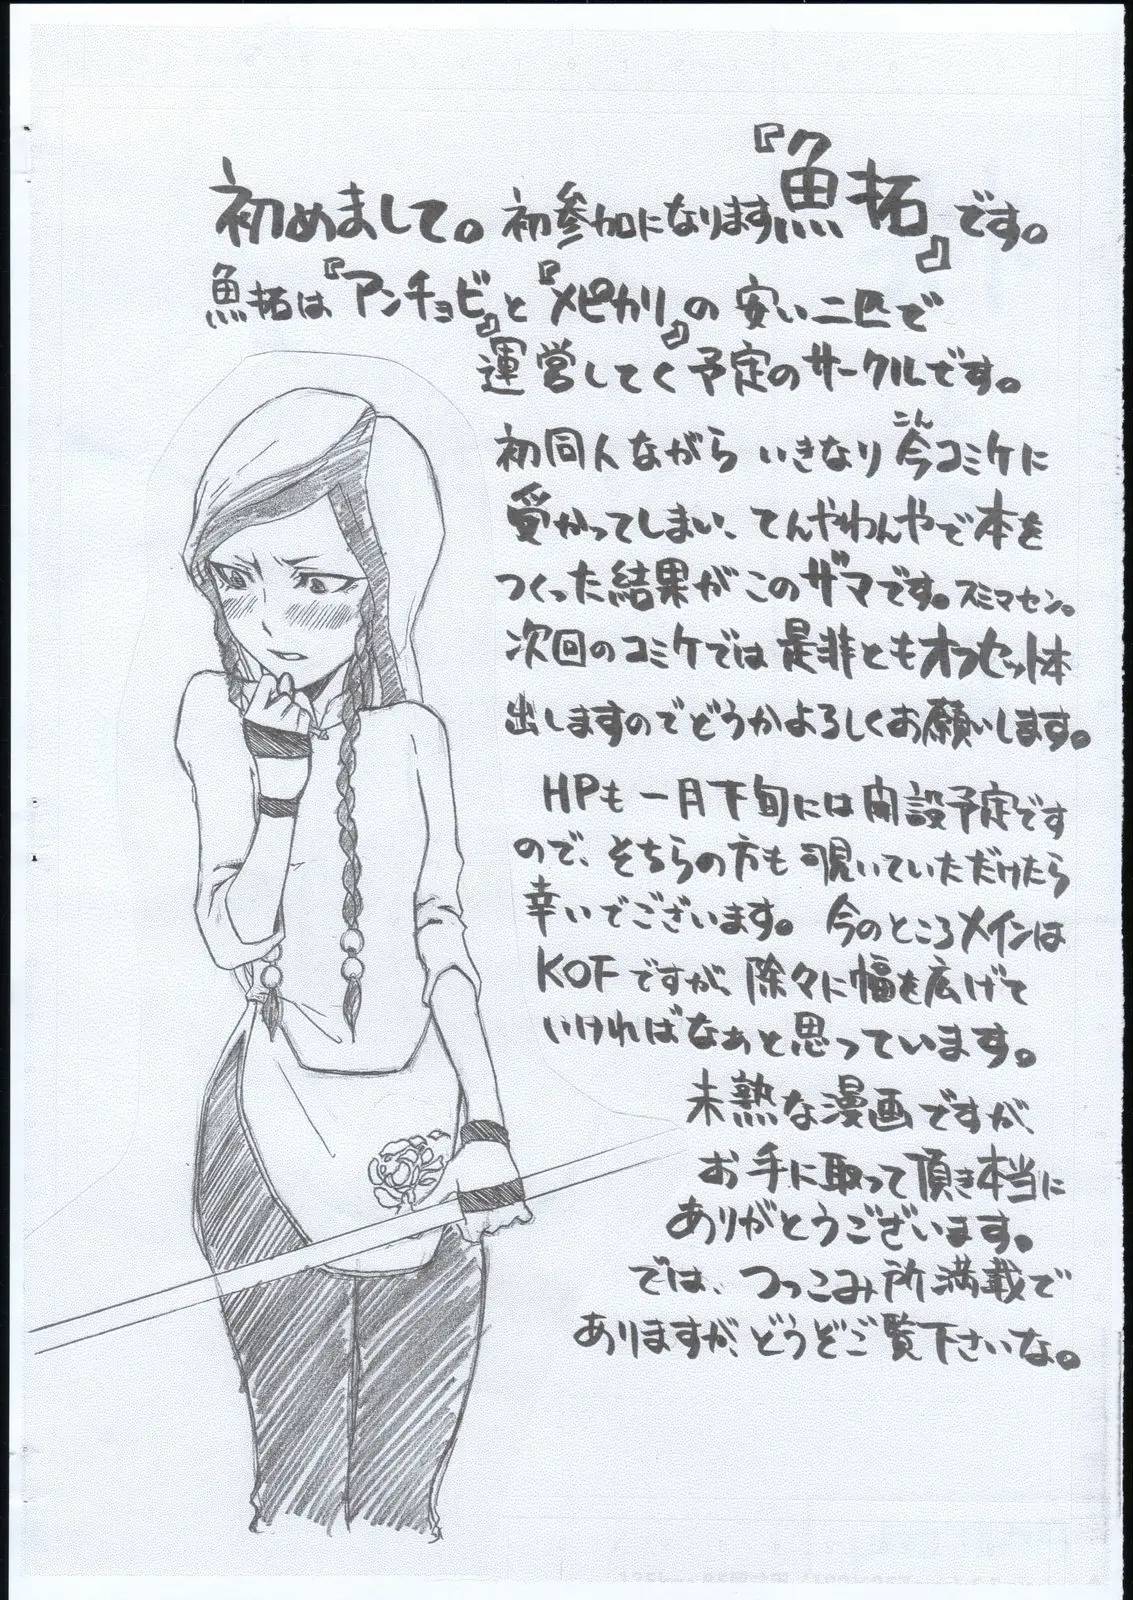 初めまして。初参加になります『魚拓』です。
魚拓は『アンチョビ』と『メピカリ』の安い二匹で
運営してく予定のサークルです。
初同人ながら いきなり今コミケに
こん
受かってしまい、てんやわんやで本を
つくった結果がこのザマです。スミマセン。
次回のコミケでは是非ともオフセット本
出しますのでどうかよろしくお願いします。
HPも一月下旬には開設予定です
ので、そちらの方も覗いていただけたら
幸いでございます。今のところメインは
KOFですが、除々に幅を広げて
いければなぁと思っています。
未熟な漫画ですが、
お手に取って頂き本当に
ありがとうございます。
では、つっこみ所満載で
ありますが、どうぞご覧下さいな。